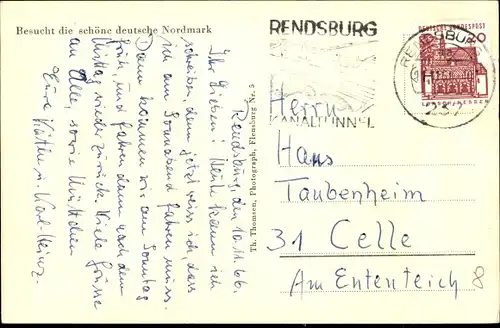 Besucht die schöne deutsche Nordmark
Rendsburg, den 10.11.66.
Ihr Lieben! Heute kann ich
schreiben, denn jetzt weiss ich, dass
ich am Sonnabend fahren muss.
Dann kommen wir am Sonntag
früh, und fahren dann nach dem
Mittag wieder zurück. Viele Grüsse
an Alle, sowie Muttchen
Eure Käthe u. Karl-Heinz.
Th. Thomsen, Photograph, Flensburg Nr.
RENDSBURG
KANALTUNNEL
RENDSBURG
DEUTSCHE BUNDESPOST
20
LORSCH/HESSEN
Herrn
Hans
Taubenheim
31 Celle
Am Ententeich 8